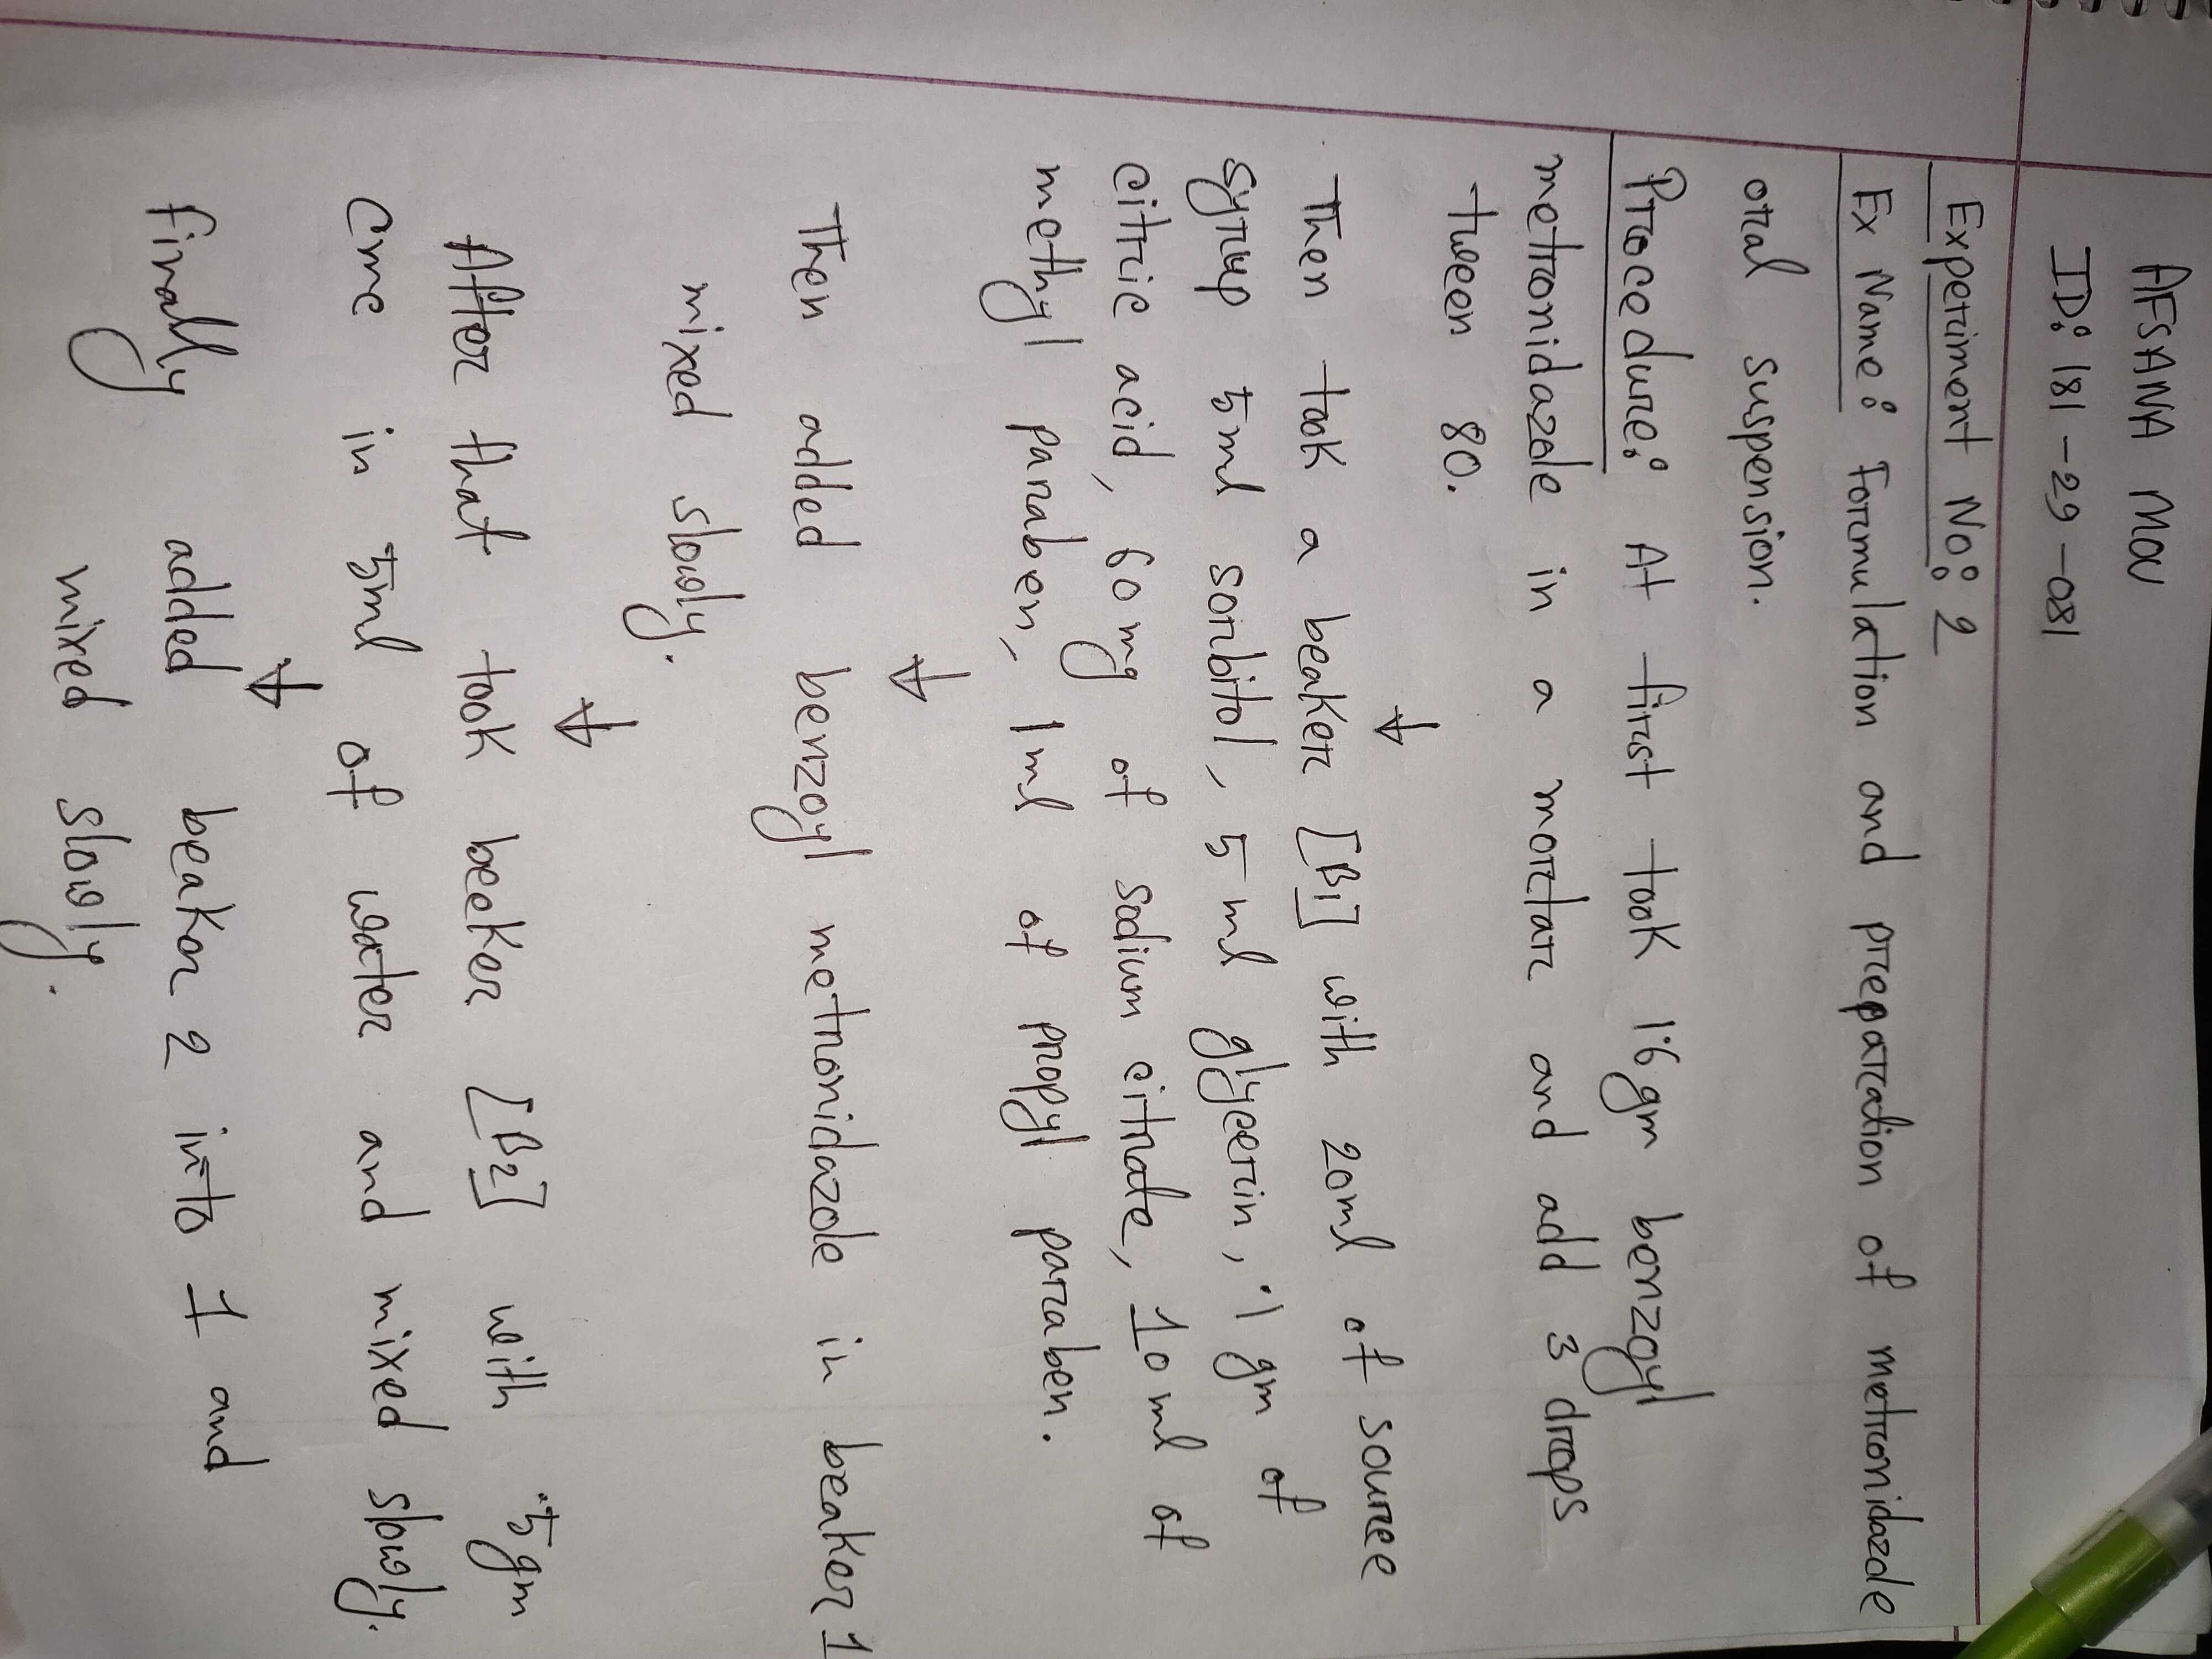 AFSANA MOU
ID: 181-29-081
Experiment No: 2
Ex Name: Formulation and preparation of metronidazole
oral suspension.
Procedure: At first took 1.6gm benzoyl
metronidazole in a mortar and add 3 drops
tween 80.
↓
Then took a beaker [B1] with 20ml of source
syrup 5ml sorbitol, 5ml glycerin, .1 gm of
citric acid, 60mg of sodium citrate, 10ml of
methyl paraben, 1ml of propyl paraben.
↓
Then added benzoyl metronidazole in beaker 1
mixed slowly.
↓
After that took beeker [B2] with .5gm
cmc in 5ml of water and mixed slowly.
↓
Finally added beaker 2 into 1 and
mixed slowly.